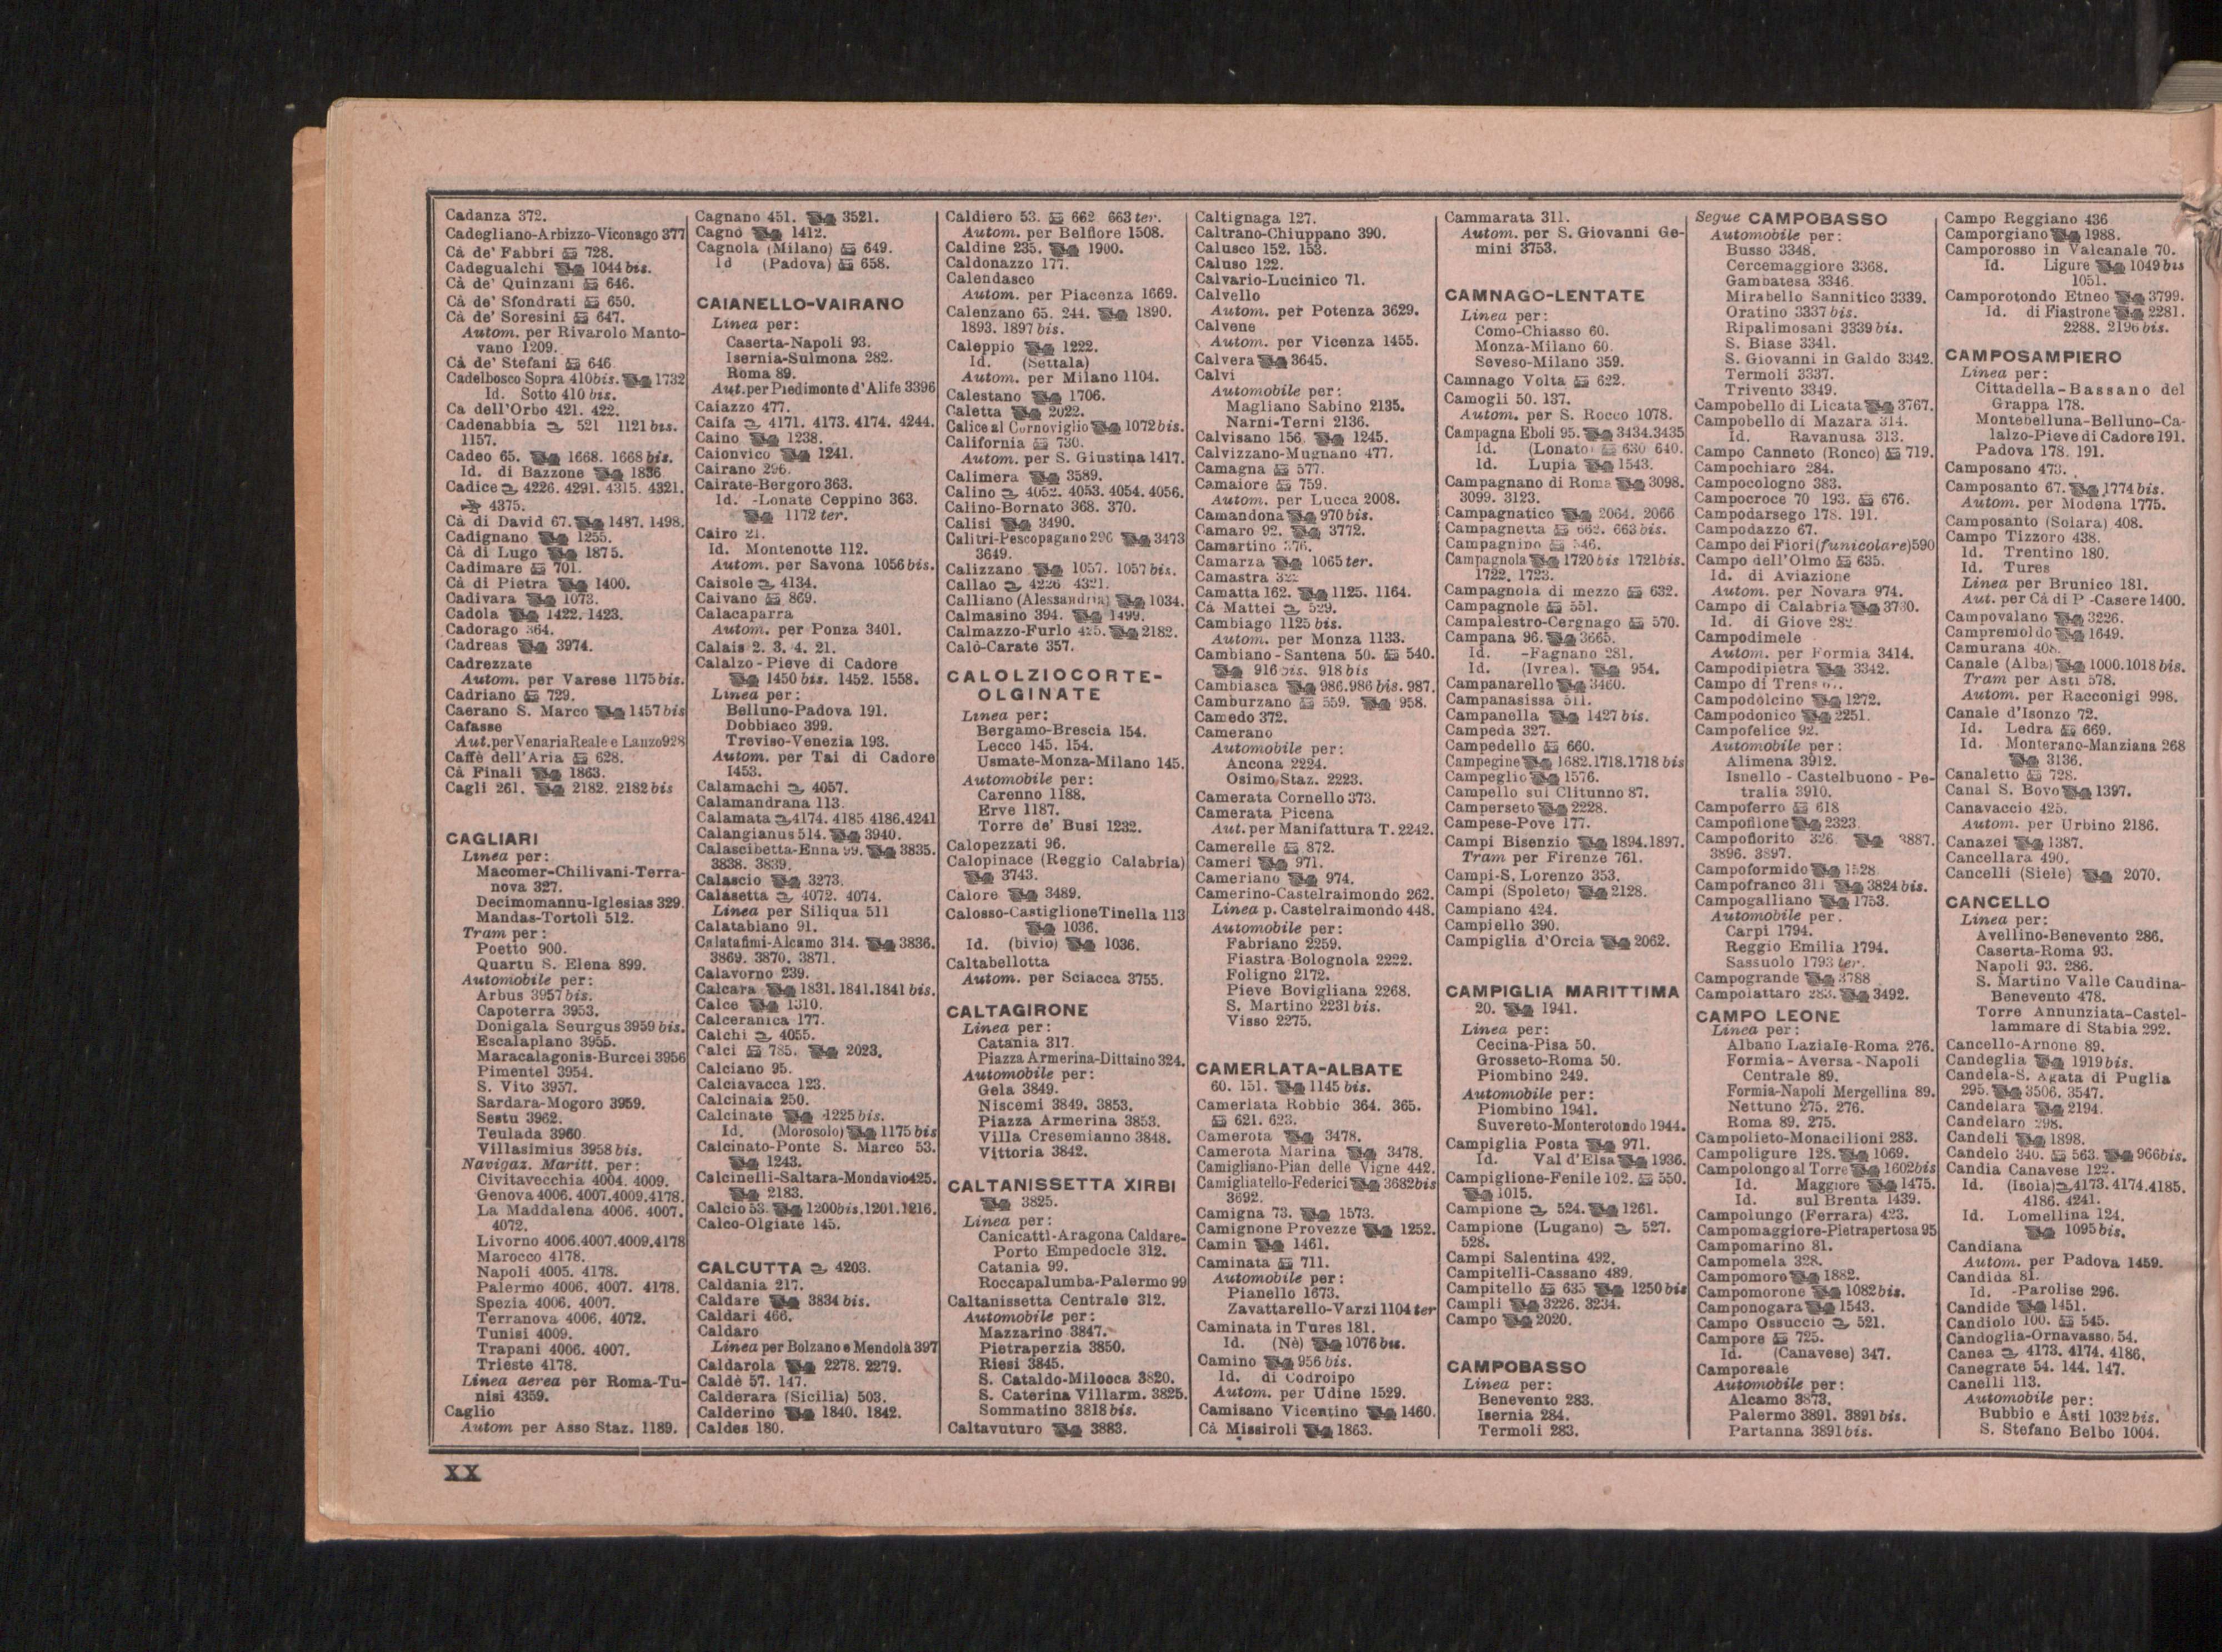 Cadanza 372.
Cadegliano-Arbizzo-Viconago 377
Cà de' Fabbri 728.
Cadegualchi 1044 bis.
Cà de' Quinzani 646.
Cà de' Sfondrati 650.
Cà de' Soresini 647.
Autom. per Rivarolo Manto-
vano 1209.
Cà de' Stefani 646
Cadelbosco Sopra 410bis. 1732
Id. Sotto 410 bis.
Ca dell'Orbo 421. 422.
Cadenabbia 521 1121 bis.
1157.
Cadeo 65. 1668. 1668 bis.
Id. di Bazzone 1836
Cadice 4226. 4291. 4315. 4321.
4375.
Cà di David 67. 1487. 1498.
Cadignano 1255.
Cà di Lugo 1875.
Cadimare 701.
Cà di Pietra 1400.
Cadivara 1073.
Cadola 1422. 1423.
Cadorago 364.
Cadreas 3974.
Cadrezzate
Autom. per Varese 1175 bis.
Cadriano 729.
Caerano S. Marco 1457 bis
Cafasse
Aut. per Venaria Reale e Lanzo 928
Caffè dell'Aria 628.
Cà Finali 1863.
Cagli 261. 2182. 2182 bis
CAGLIARI
Linea per:
Macomer-Chilivani-Terra-
nova 327.
Decimomannu-Iglesias 329.
Mandas-Tortolì 512.
Tram per:
Poetto 900.
Quartu S. Elena 899.
Automobile per:
Arbus 3957 bis.
Capoterra 3953.
Donigala Seurgus 3959 bis.
Escalaplano 3955.
Maracalagonis-Burcei 3956
Pimentel 3954.
S. Vito 3957.
Sardara-Mogoro 3959.
Sestu 3962.
Teulada 3960.
Villasimius 3958 bis.
Navigaz. Maritt. per:
Civitavecchia 4004. 4009.
Genova 4006. 4007. 4009. 4178.
La Maddalena 4006. 4007.
4072.
Livorno 4006. 4007. 4009. 4178
Marocco 4178.
Napoli 4005. 4178.
Palermo 4006. 4007. 4178.
Spezia 4006. 4007.
Terranova 4006. 4072.
Tunisi 4009.
Trapani 4006. 4007.
Trieste 4178.
Linea aerea per Roma-Tu-
nisi 4359.
Caglio
Autom per Asso Staz. 1189.
Cagnano 451. 3521.
Cagnò 1412.
Cagnola (Milano) 649.
Id (Padova) 658.
CAIANELLO-VAIRANO
Linea per:
Caserta-Napoli 93.
Isernia-Sulmona 282.
Roma 89.
Aut. per Piedimonte d'Alife 3396
Caiazzo 477.
Caifa 4171. 4173. 4174. 4244.
Caino 1238.
Caionvico 1241.
Cairano 296.
Cairate-Bergoro 363.
Id. -Lonate Ceppino 363.
1172 ter.
Cairo 21.
Id. Montenotte 112.
Autom. per Savona 1056 bis.
Caisole 4134.
Caivano 869.
Calacaparra
Autom. per Ponza 3401.
Calais 2. 3. 4. 21.
Calalzo - Pieve di Cadore
1450 bis. 1452. 1558.
Linea per:
Belluno-Padova 191.
Dobbiaco 399.
Treviso-Venezia 193.
Autom. per Tai di Cadore
1453.
Calamachi 4057.
Calamandrana 113.
Calamata 4174. 4185 4186. 4241
Calangianus 514. 3940.
Calascibetta-Enna 99. 3835.
3838. 3839.
Calascio 3273.
Calasetta 4072. 4074.
Linea per Siliqua 511
Calatabiano 91.
Calatafimi-Alcamo 314. 3836.
3869. 3870. 3871.
Calavorno 239.
Calcara 1831. 1841. 1841 bis.
Calce 1310.
Calceranica 177.
Calchi 4055.
Calci 785. 2023.
Calciano 95.
Calciavacca 123.
Calcinaia 250.
Calcinate 1225 bis.
Id. (Morosolo) 1175 bis
Calcinato-Ponte S. Marco 53.
1243.
Calcinelli-Saltara-Mondavio 425.
2183.
Calcio 53. 1200 bis. 1201. 1216.
Calco-Olgiate 145.
CALCUTTA 4203.
Caldania 217.
Caldare 3834 bis.
Caldari 466.
Caldaro
Linea per Bolzano e Mendola 397
Caldarola 2278. 2279.
Caldè 57. 147.
Calderara (Sicilia) 503.
Calderino 1840. 1842.
Caldes 180.
Caldiero 53. 662 663 ter.
Autom. per Belfiore 1508.
Caldine 235. 1900.
Caldonazzo 177.
Calendasco
Autom. per Piacenza 1669.
Calenzano 65. 244. 1890.
1893. 1897 bis.
Caleppio 1222.
Id. (Settala)
Autom. per Milano 1104.
Calestano 1706.
Caletta 2022.
Calice al Cornoviglio 1072 bis.
California 730.
Autom. per S. Giustina 1417.
Calimera 3589.
Calino 4052. 4053. 4054. 4056.
Calino-Bornato 368. 370.
Calisi 3490.
Calitri-Pescopagano 296 3473
3649.
Calizzano 1057. 1057 bis.
Callao 4226 4321.
Calliano (Alessandria) 1034.
Calmasino 394. 1499.
Calmazzo-Furlo 425. 2182.
Calò-Carate 357.
CALOLZIOCORTE-
OLGINATE
Linea per:
Bergamo-Brescia 154.
Lecco 145. 154.
Usmate-Monza-Milano 145.
Automobile per:
Carenno 1188.
Erve 1187.
Torre de' Busi 1232.
Calopezzati 96.
Calopinace (Reggio Calabria)
3743.
Calore 3489.
Calosso-Castiglione Tinella 113
1036.
Id. (bivio) 1036.
Caltabellotta
Autom. per Sciacca 3755.
CALTAGIRONE
Linea per:
Catania 317.
Piazza Armerina-Dittaino 324.
Automobile per:
Gela 3849.
Niscemi 3849. 3853.
Piazza Armerina 3853.
Villa Cresemianno 3848.
Vittoria 3842.
CALTANISSETTA XIRBI
3825.
Linea per:
Canicattì-Aragona Caldare-
Porto Empedocle 312.
Catania 99.
Roccapalumba-Palermo 99
Caltanissetta Centrale 312.
Automobile per:
Mazzarino 3847.
Pietraperzia 3850.
Riesi 3845.
S. Cataldo-Milocca 3820.
S. Caterina Villarm. 3825.
Sommatino 3818 bis.
Caltavuturo 3883.
Caltignaga 127.
Caltrano-Chiuppano 390.
Calusco 152. 153.
Caluso 122.
Calvario-Lucinico 71.
Calvello
Autom. per Potenza 3629.
Calvene
Autom. per Vicenza 1455.
Calvera 3645.
Calvi
Automobile per:
Magliano Sabino 2135.
Narni-Terni 2136.
Calvisano 156. 1245.
Calvizzano-Mugnano 477.
Camagna 577.
Camaiore 759.
Autom. per Lucca 2008.
Camandona 970 bis.
Camaro 92. 3772.
Camartino 376.
Camarza 1065 ter.
Camastra 322
Camatta 162. 1125. 1164.
Cà Mattei 529.
Cambiago 1125 bis.
Autom. per Monza 1133.
Cambiano - Santena 50. 540.
916 bis. 918 bis
Cambiasca 986. 986 bis. 987.
Camburzano 559. 958.
Camedo 372.
Camerano
Automobile per:
Ancona 2224.
Osimo Staz. 2223.
Camerata Cornello 373.
Camerata Picena
Aut. per Manifattura T. 2242.
Camerelle 872.
Cameri 971.
Cameriano 974.
Camerino-Castelraimondo 262.
Linea p. Castelraimondo 448.
Automobile per:
Fabriano 2259.
Fiastra Bolognola 2222.
Foligno 2172.
Pieve Bovigliana 2268.
S. Martino 2231 bis.
Visso 2275.
CAMERLATA-ALBATE
60. 151. 1145 bis.
Camerlata Robbio 364. 365.
621. 623.
Camerota 3478.
Camerota Marina 3478.
Camigliano-Pian delle Vigne 442.
Camigliatello-Federici 3682 bis
3692.
Camigna 73. 1573.
Camignone Provezze 1252.
Camin 1461.
Caminata 711.
Automobile per:
Pianello 1673.
Zavattarello-Varzi 1104 ter
Caminata in Tures 181.
Id. (Nè) 1076 bis.
Camino 956 bis.
Id. di Codroipo
Autom. per Udine 1529.
Camisano Vicentino 1460.
Cà Missiroli 1863.
Cammarata 311.
Autom. per S. Giovanni Ge-
mini 3753.
CAMNAGO-LENTATE
Linea per:
Como-Chiasso 60.
Monza-Milano 60.
Seveso-Milano 359.
Camnago Volta 622.
Camogli 50. 137.
Autom. per S. Rocco 1078.
Campagna Eboli 95. 3434. 3435
Id. (Lonato) 630 640.
Id. Lupia 1543.
Campagnano di Roma 3098.
3099. 3123.
Campagnatico 2064. 2066
Campagnetta 662. 663 bis.
Campagnino 546.
Campagnola 1720 bis 1721 bis.
1722. 1723.
Campagnola di mezzo 632.
Campagnole 551.
Campalestro-Cergnago 570.
Campana 96. 3665.
Id. -Fagnano 281.
Id. (Ivrea). 954.
Campanarello 3460.
Campanasissa 511.
Campanella 1427 bis.
Campeda 327.
Campedello 660.
Campegine 1682. 1718. 1718 bis
Campeglio 1576.
Campello sul Clitunno 87.
Camperseto 2228.
Campese-Pove 177.
Campi Bisenzio 1894. 1897.
Tram per Firenze 761.
Campi-S. Lorenzo 353.
Campi (Spoleto) 2128.
Campiano 424.
Campiello 390.
Campiglia d'Orcia 2062.
CAMPIGLIA MARITTIMA
20. 1941.
Linea per:
Cecina-Pisa 50.
Grosseto-Roma 50.
Piombino 249.
Automobile per:
Piombino 1941.
Suvereto-Monterotondo 1944.
Campiglia Posta 971.
Id. Val d'Elsa 1936.
Campiglione-Fenile 102. 550.
1015.
Campione 524. 1261.
Campione (Lugano) 527.
528.
Campi Salentina 492.
Campitelli-Cassano 489.
Campitello 635 1250 bis
Campli 3226. 3234.
Campo 2020.
CAMPOBASSO
Linea per:
Benevento 283.
Isernia 284.
Termoli 283.
Segue CAMPOBASSO
Automobile per:
Busso 3348.
Cercemaggiore 3368.
Gambatesa 3346.
Mirabello Sannitico 3339.
Oratino 3337 bis.
Ripalimosani 3339 bis.
S. Biase 3341.
S. Giovanni in Galdo 3342.
Termoli 3337.
Trivento 3349.
Campobello di Licata 3767.
Campobello di Mazara 314.
Id. Ravanusa 313.
Campo Canneto (Ronco) 719.
Campochiaro 284.
Campocologno 383.
Campocroce 70 193. 676.
Campodarsego 178. 191.
Campodazzo 67.
Campo dei Fiori (funicolare) 590
Campo dell'Olmo 635.
Id. di Aviazione
Autom. per Novara 974.
Campo di Calabria 3730.
Id. di Giove 282.
Campodimele
Autom. per Formia 3414.
Campodipietra 3342.
Campo di Trens
Campodolcino 1272.
Campodonico 2251.
Campofelice 92.
Automobile per:
Alimena 3912.
Isnello - Castelbuono - Pe-
tralia 3910.
Campoferro 618
Campofilone 2323
Campofiorito 326. 3887.
3896. 3897.
Campoformido 1528
Campofranco 311 3824 bis.
Campogalliano 1753.
Automobile per.
Carpi 1794.
Reggio Emilia 1794.
Sassuolo 1793 ter.
Campogrande 3788
Campolattaro 283. 3492.
CAMPO LEONE
Linea per:
Albano Laziale-Roma 276.
Formia - Aversa - Napoli
Centrale 89.
Formia-Napoli Mergellina 89.
Nettuno 275. 276.
Roma 89. 275.
Campolieto-Monacilioni 283.
Campoligure 128. 1069.
Campolongo al Torre 1602 bis
Id. Maggiore 1475.
Id. sul Brenta 1439.
Campolungo (Ferrara) 423.
Campomaggiore-Pietrapertosa 95
Campomarino 81.
Campomela 328.
Campomoro 1882.
Campomorone 1082 bis.
Camponogara 1543.
Campo Ossuccio 521.
Campore 725.
Id. (Canavese) 347.
Camporeale
Automobile per:
Alcamo 3873.
Palermo 3891. 3891 bis.
Partanna 3891 bis.
Campo Reggiano 436
Camporgiano 1988.
Camporosso in Valcanale 70.
Id. Ligure 1049 bis
1051.
Camporotondo Etneo 3799.
Id. di Fiastrone 2281.
2288. 2196 bis.
CAMPOSAMPIERO
Linea per:
Cittadella - Bassano del
Grappa 178.
Montebelluna-Belluno-Ca-
lalzo-Pieve di Cadore 191.
Padova 178. 191.
Camposano 473.
Camposanto 67. 1774 bis.
Autom. per Modena 1775.
Camposanto (Solara) 408.
Campo Tizzoro 438.
Id. Trentino 180.
Id. Tures
Linea per Brunico 181.
Aut. per Cà di P.-Casere 1400.
Campovalano 3226.
Campremoldo 1649.
Camurana 408.
Canale (Alba) 1000. 1018 bis.
Tram per Asti 578.
Autom. per Racconigi 998.
Canale d'Isonzo 72.
Id. Ledra 669.
Id. Monterano-Manziana 268
3136.
Canaletto 728.
Canal S. Bovo 1397.
Canavaccio 425.
Autom. per Urbino 2186.
Canazei 1387.
Cancellara 490.
Cancelli (Siele) 2070.
CANCELLO
Linea per:
Avellino-Benevento 286.
Caserta-Roma 93.
Napoli 93. 286.
S. Martino Valle Caudina-
Benevento 478.
Torre Annunziata-Castel-
lammare di Stabia 292.
Cancello-Arnone 89.
Candeglia 1919 bis.
Candela-S. Agata di Puglia
295. 3506. 3547.
Candelara 2194.
Candelaro 298.
Candeli 1898.
Candelo 340. 563. 966 bis.
Candia Canavese 122.
Id. (isola) 4173. 4174. 4185.
4186. 4241.
Id. Lomellina 124.
1095 bis.
Candiana
Autom. per Padova 1459.
Candida 81.
Id. -Parolise 296.
Candide 1451.
Candiolo 100. 545.
Candoglia-Ornavasso 54.
Canea 4173. 4174. 4186.
Canegrate 54. 144. 147.
Canelli 113.
Automobile per:
Bubbio e Asti 1032 bis.
S. Stefano Belbo 1004.
XX